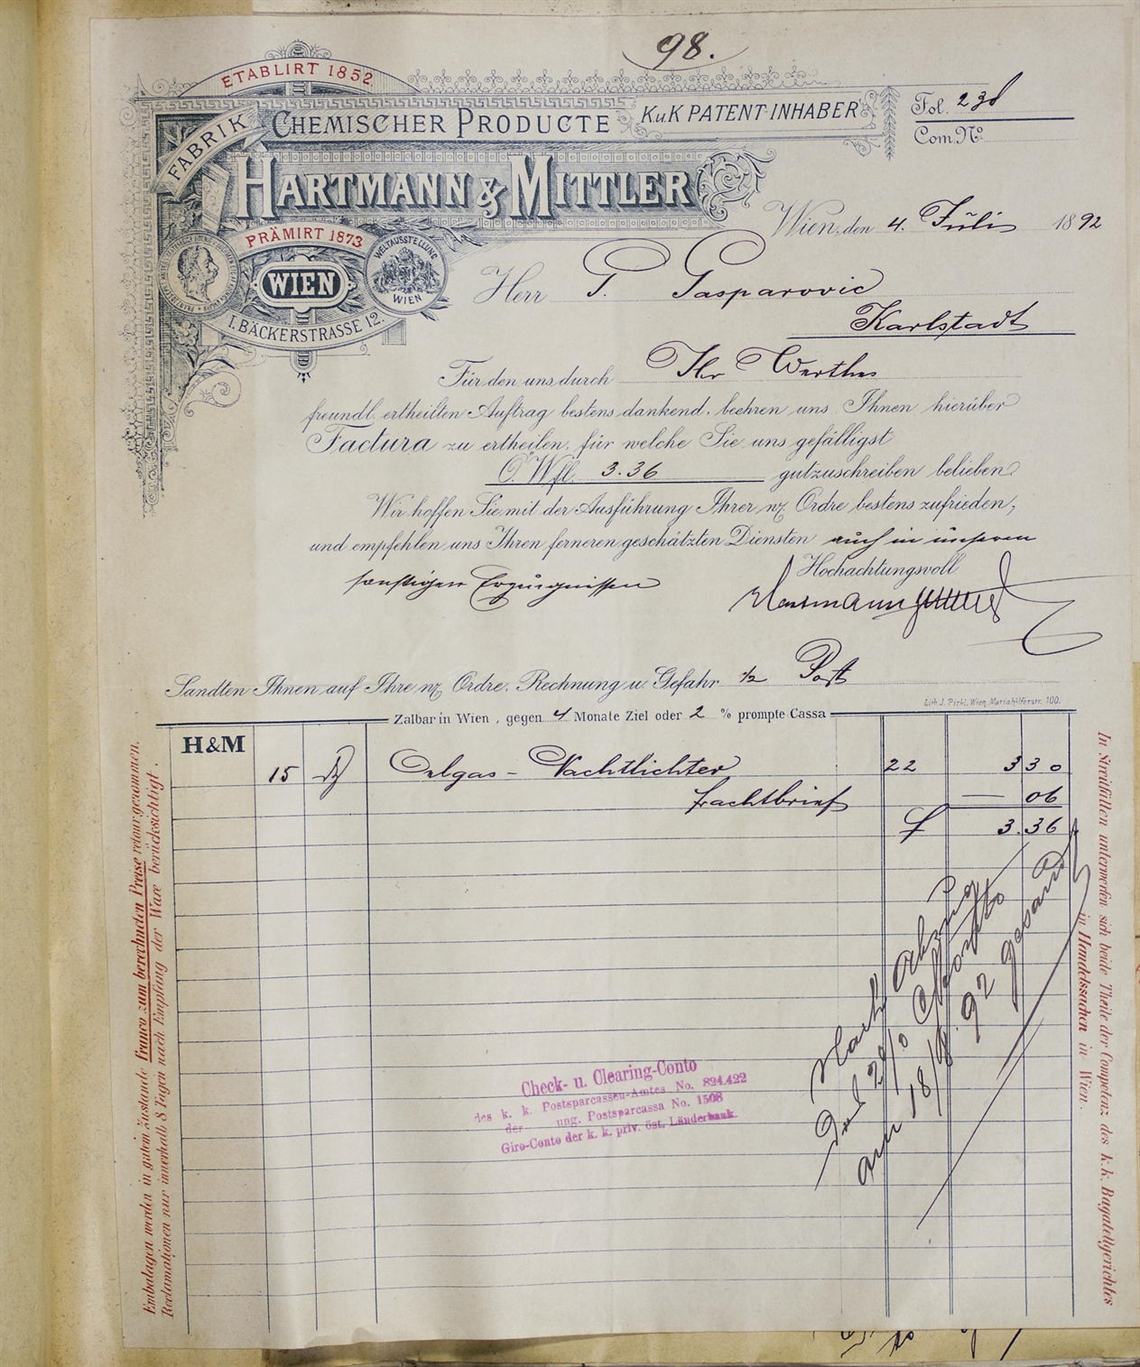 98.
ETABLIRT 1852.
FABRIK
CHEMISCHER PRODUCTE
K.u.K PATENT-INHABER
Fol. 238
Com. No.
HARTMANN & MITTLER
PRÄMIRT 1873
WIEN
WELTAUSSTELLUNG
WIEN
I. BÄCKERSTRASSE 12.
Wien, den 4. Juli 1892
Herr P. Gasparovic
Karlstadt
Für den uns durch Ihr Werthes
freundl. ertheilten Auftrag bestens dankend, beehren uns Ihnen hierüber
Factura zu ertheilen, für welche Sie uns gefälligst
Ö. W. fl. 3.36 gutzuschreiben belieben.
Wir hoffen Sie mit der Ausführung Ihrer w. Ordre bestens zufrieden,
und empfehlen uns Ihren ferneren geschätzten Diensten auch in unseren
sonstigen Erzeugnissen
Hochachtungsvoll
Hartmann Mittler
Sandten Ihnen auf Ihre w. Ordre, Rechnung u. Gefahr Post
Lith. J. Pirkl, Wien, Mariahilferstr. 100.
Zalbar in Wien, gegen 4 Monate Ziel oder 2 % prompte Cassa
H&M
15 Oelgas - Nachtlichter 22 3 30
frachtbrief — 06
f 3.36
Nach Abzug
2% Sconto
am 18/9. 92 gesandt
Check- u. Clearing-Conto
des k. k. Postsparcassen-Amtes No. 824.422
der ung. Postsparcassa No. 1508
Giro-Conto der k. k. priv. öst. Länderbank.
Embalagen werden in gutem Zustande franco zum berechneten Preise retour genommen.
Reclamationen nur innerhalb 8 Tagen nach Empfang der Ware berücksichtigt.
In Streitfällen unterwerfen sich beide Theile der Competenz des k.k. Bagatellgerichtes
in Handelssachen in Wien.